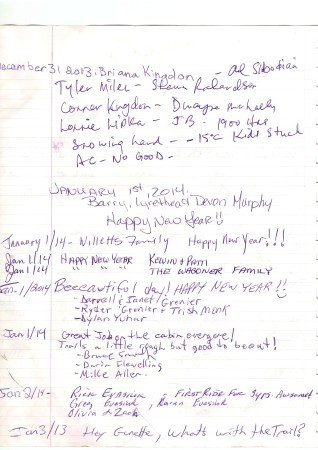 December 31 2013. Briana Kingdon - Al
Tyler Miles - Shawn Richardson
Conner Kingdon - Dwayne McNeely
Lonnie - JB - 1900 Hrs
Snowing hard - -15°C Kids Stuck
AC - NO GOOD -
JANUARY 1st, 2014.
Barry, Lyrethead Devon Murphy
Happy New Year!!
January 1/14 - Willetts Family Happy New Year!!!
Jan 1/14 HAPPY NEW YEAR KELVIN & PATTI
Jan 1/14 " " " THE WAGONER FAMILY
Jan. 1/2014 Beeeautiful day! HAPPY NEW YEAR!!
- Darrall & Janet Grenier
- Ryder Grenier & Trish Monk
- Dylan
Jan 1/14 Great Job on the cabin everyone!
Trails a little rough but good to be out!
- Bruce
- Darin Flewelling
- Mike Allen
Jan 2/14 - Rick Evasiuk - First Ride For 3yrs. Awesome!
Greg Evasiuk, Karen Evasiuk
Olivia & Zack
Jan 3/13 Hey Gunette, what's with the Trail?